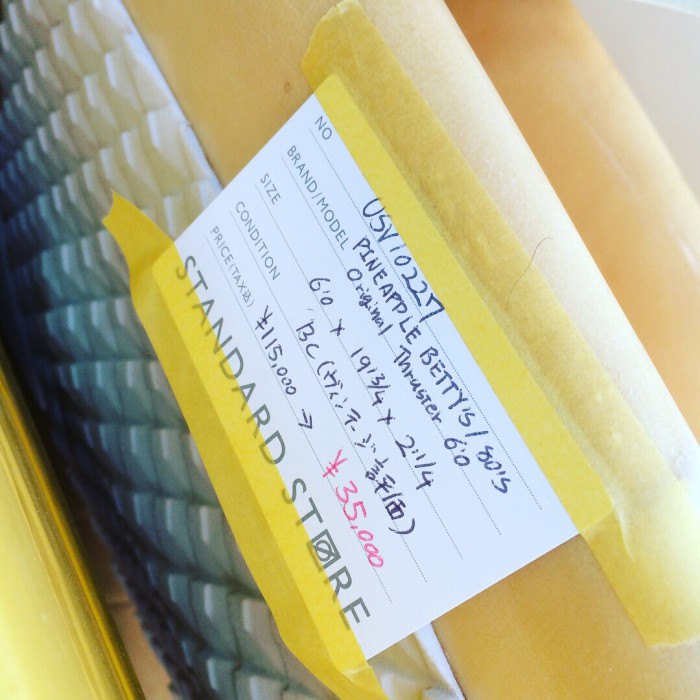 NO USV10227
BRAND/MODEL PINEAPPLE BETTY'S/80'S
Original Thruster 6'0
SIZE 6'0 x 19 3/4 x 2:1/4
CONDITION BC (ヴィンテージ評価)
PRICE(TAX込) ¥115,000 → ¥35,000
STANDARD STORE